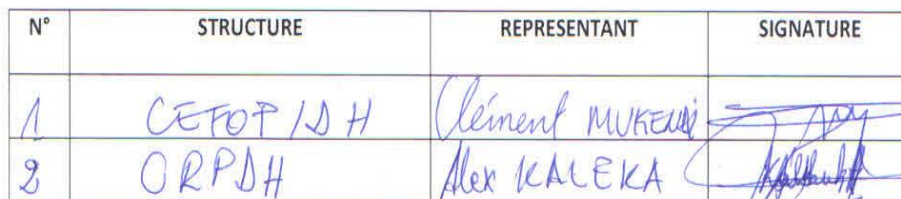 N° STRUCTURE REPRESENTANT SIGNATURE
1 CEFOP/DH Clément MUKENDI
2 ORPDH Alex KALEKA